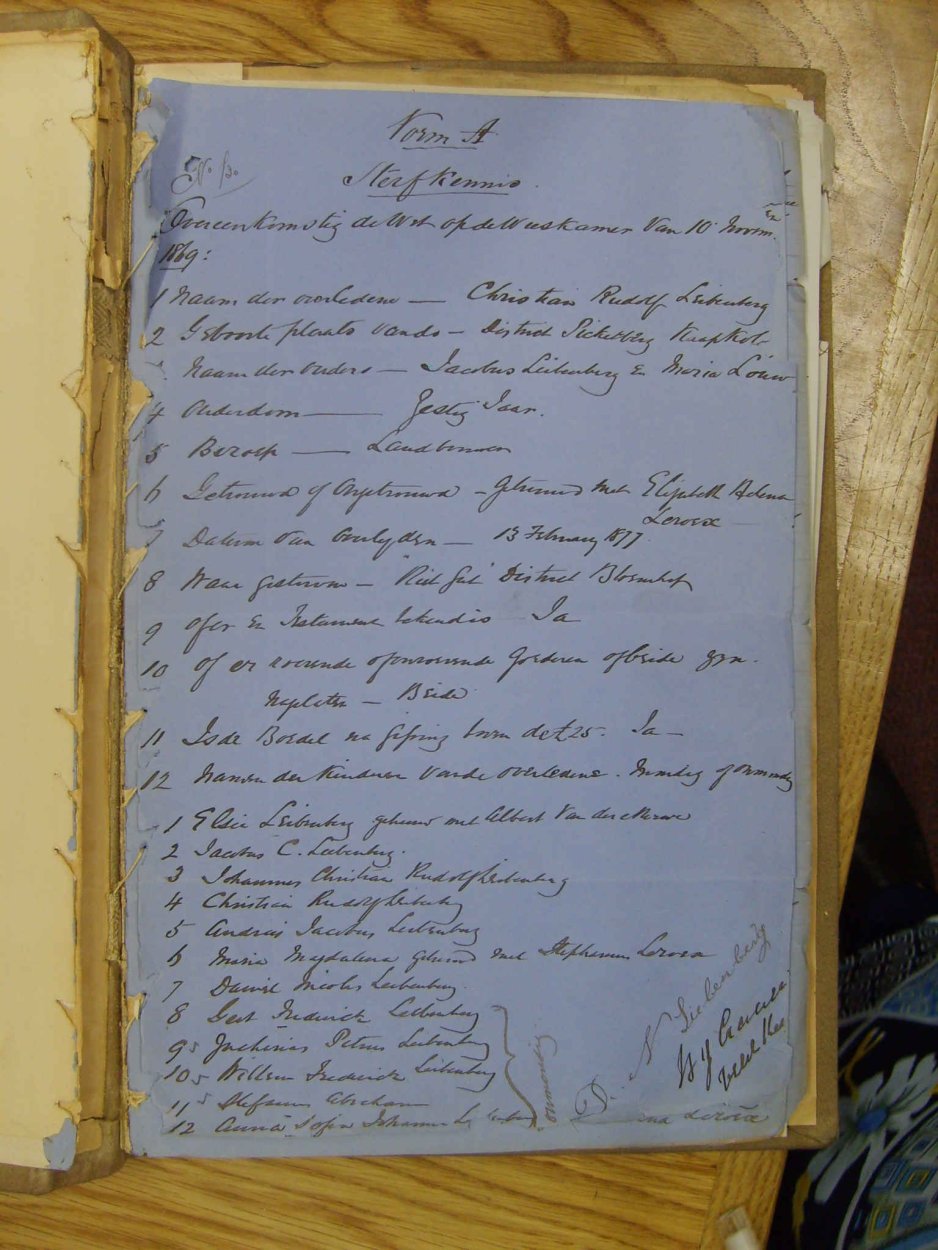 Vorm A
No 130
Sterfkennis.
Overeenkomstig de Wet op de Weeskamer Van 10 Novem.
1869:
1 Naam der overledene — Christian Rudolf Leibenberg
2 Geboorte plaats vando — District Picketberg Kaap Kol.
Naam der ouders — Jacobus Leibenberg En Maria Louw
4 Ouderdom — Zestig Jaar.
5 Beroep — Landbouwer
6 Getrouwd of Ongetrouwd — Getrouwd met Elizabeth Helena
Leroux
7 Datum Van Overlyden — 13 February 1877.
8 Waar gestorven — Riet Gat District Bloemhof
9 Of er En Testament bekend is Ja
10 Of er roerende of onroerende goederen of beide zyn.
Nagelaten — Beide
11 Is de Boedel na gissing boven de £25. Ja —
12 Namen der Kinderen Van de Overledene. Mondig of Onmondig
1 Elsie Leibenberg getrouwd met Albert Van der Merwe
2 Jacobus C. Leibenberg.
3 Johannes Christian Rudolf Leibenberg
4 Christian Rudolf Leibenberg
5 Andrias Jacobus Leibenberg
6 Maria Magdalena getrouwd met Stephanus Leroux
7 Daniel Nicolas Leibenberg.
8 Gert Frederick Leibenberg
9 Petrus Leibenberg
10 Willem Frederick Leibenberg
11 Stefanus Abraham
12 Anna Sofia Johanna
Onmondig
D. N. Liebenberg
Leroux